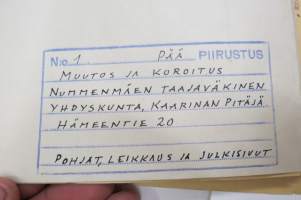 N:o 1. PÄÄ PIIRUSTUS
MUUTOS JA KOROITUS
NUMMENMÄEN TAAJAVÄKINEN
YHDYSKUNTA, KAARINAN PITÄJÄ
HÄMEENTIE 20
POHJAT, LEIKKAUS JA JULKISIVUT